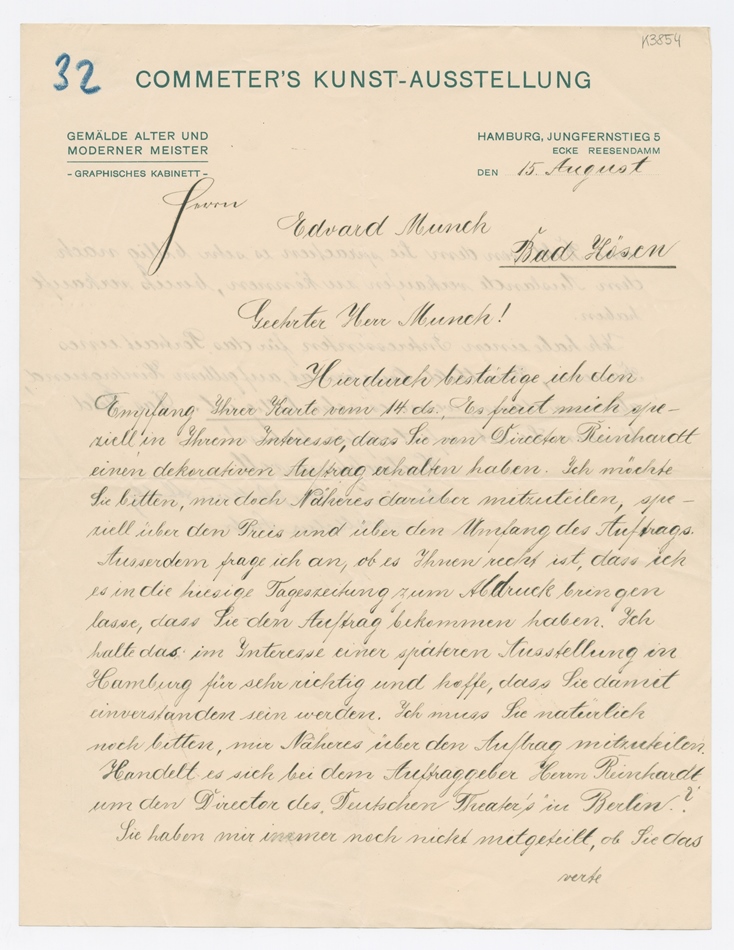 K3854
32
COMMETER'S KUNST-AUSSTELLUNG
GEMÄLDE ALTER UND
MODERNER MEISTER
- GRAPHISCHES KABINETT -
HAMBURG, JUNGFERNSTIEG 5
ECKE REESENDAMM
DEN 15. August
Herrn
Edvard Munch
Bad Kösen
Geehrter Herr Munch!
Hierdurch bestätige ich den
Empfang Ihrer Karte vom 14. ds. Es freut mich spe-
ziell in Ihrem Interesse, dass Sie von Director Reinhardt
einen dekorativen Auftrag erhalten haben. Ich möchte
Sie bitten, mir doch Näheres darüber mitzuteilen, spe-
ziell über den Preis und über den Umfang des Auftrags.
Ausserdem frage ich an, ob es Ihnen recht ist, dass ich
es in die hiesige Tageszeitung zum Abdruck bringen
lasse, dass Sie den Auftrag bekommen haben. Ich
halte das im Interesse einer späteren Ausstellung in
Hamburg für sehr richtig und hoffe, dass Sie damit
einverstanden sein werden. Ich muss Sie natürlich
noch bitten, mir Näheres über den Auftrag mitzuteilen.
Handelt es sich bei dem Auftraggeber Herrn Reinhardt
um den Director des „Deutschen Theater's" in Berlin?
Sie haben mir immer noch nicht mitgeteilt, ob Sie das
verte